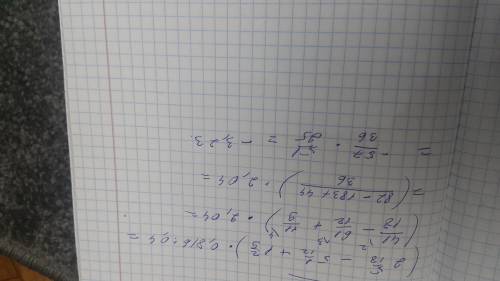 (2 5/18 - 5 1/12 + 1 2/9) · 0,816:0,4 =
(41/18 - 61/12 + 11/9) · 2,04 =
= ((82 - 183 + 44)/36) · 2,04 =
= -57/36 · 51/25 = -3,23.